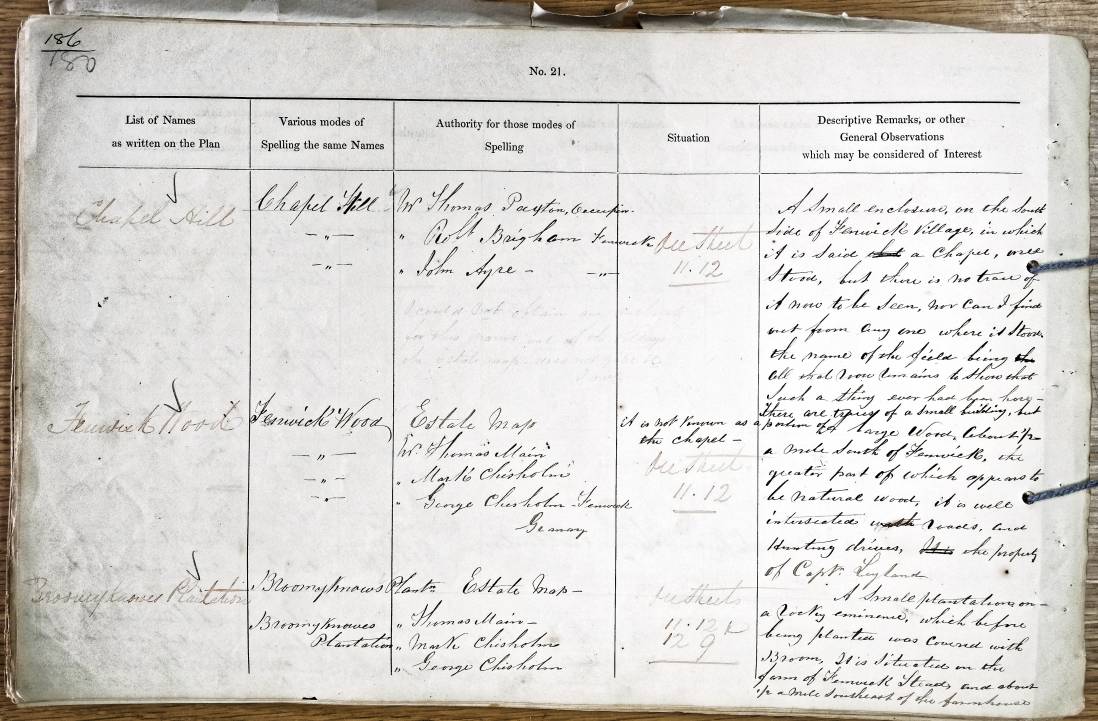 186
180
No. 21.
List of Names
as written on the Plan
Various modes of
Spelling the same Names
Authority for those modes of
Spelling
Situation
Descriptive Remarks, or other
General Observations
which may be considered of Interest
Chapel Hill
Chapel Hill
Mr Thomas Paxton, Occupier
A Small enclosure, on the South
side of Fenwick Village, in which
it is said that a Chapel, once
Stood, but there is no trace of
it now to be seen, nor can I find
out from any one where it stood,
the name of the field being the
all that now remains to show that
such a thing ever had been here –
There are traces of a small building, but
it is not known as a
the chapel –
–„–
„ Robt Brigham Fenwick
See Sheet
11.12
–„–
„ John Ayre – –„–
Fenwick Wood
Fenwick Wood
Estate Map
portion of a large Wood, about ½
a mile South of Fenwick, the
greater part of which appears to
be natural wood, it is well
intersected with roads, and
Hunting drives, It is the property
of Captn. Leyland
–„–
Mr. Thomas Main
–„–
„ Mark Chisholm
–„–
„ George Chisholm Fenwick
Granary
See Sheet
11.12
Broomyknowes Plantation
Broomyknows Plantn
Estate Map –
Broomyknowes
Plantation
„ Thomas Main –
„ Mark Chisholm
„ George Chisholm
See Sheets
11.12
12 9
A Small plantation on
a rocky eminence, which before
being planted was Covered with
Broom, It is Situated on the
farm of Fenwick Stead, and about
½ a mile southeast of the farmhouse